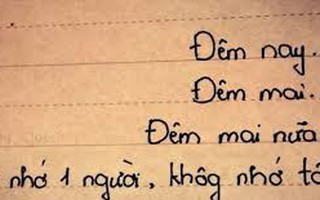 Đêm nay.
Đêm mai.
Đêm mai nữa
nhớ 1 người, khôg nhớ tô